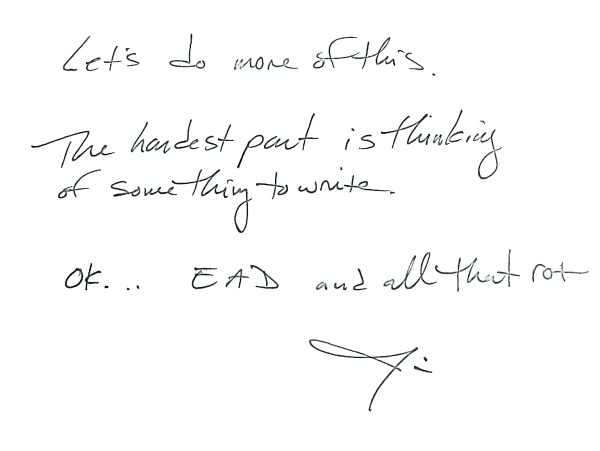 Let's do more of this.
The hardest part is thinking
of something to write.
OK... EAD and all that rot